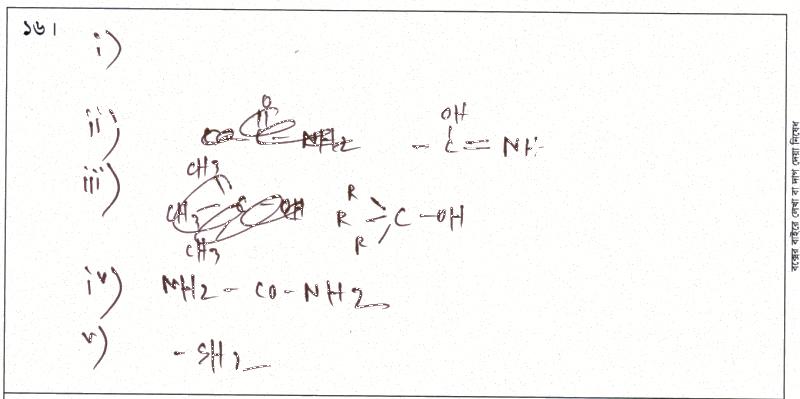 ১৬।
i)
ii) OH
- C = NH
iii) R
R - C - OH
R
iv) NH2 - CO - NH2
v) - SH
বক্সের বাইরে লেখা বা দাগ দেয়া নিষেধ